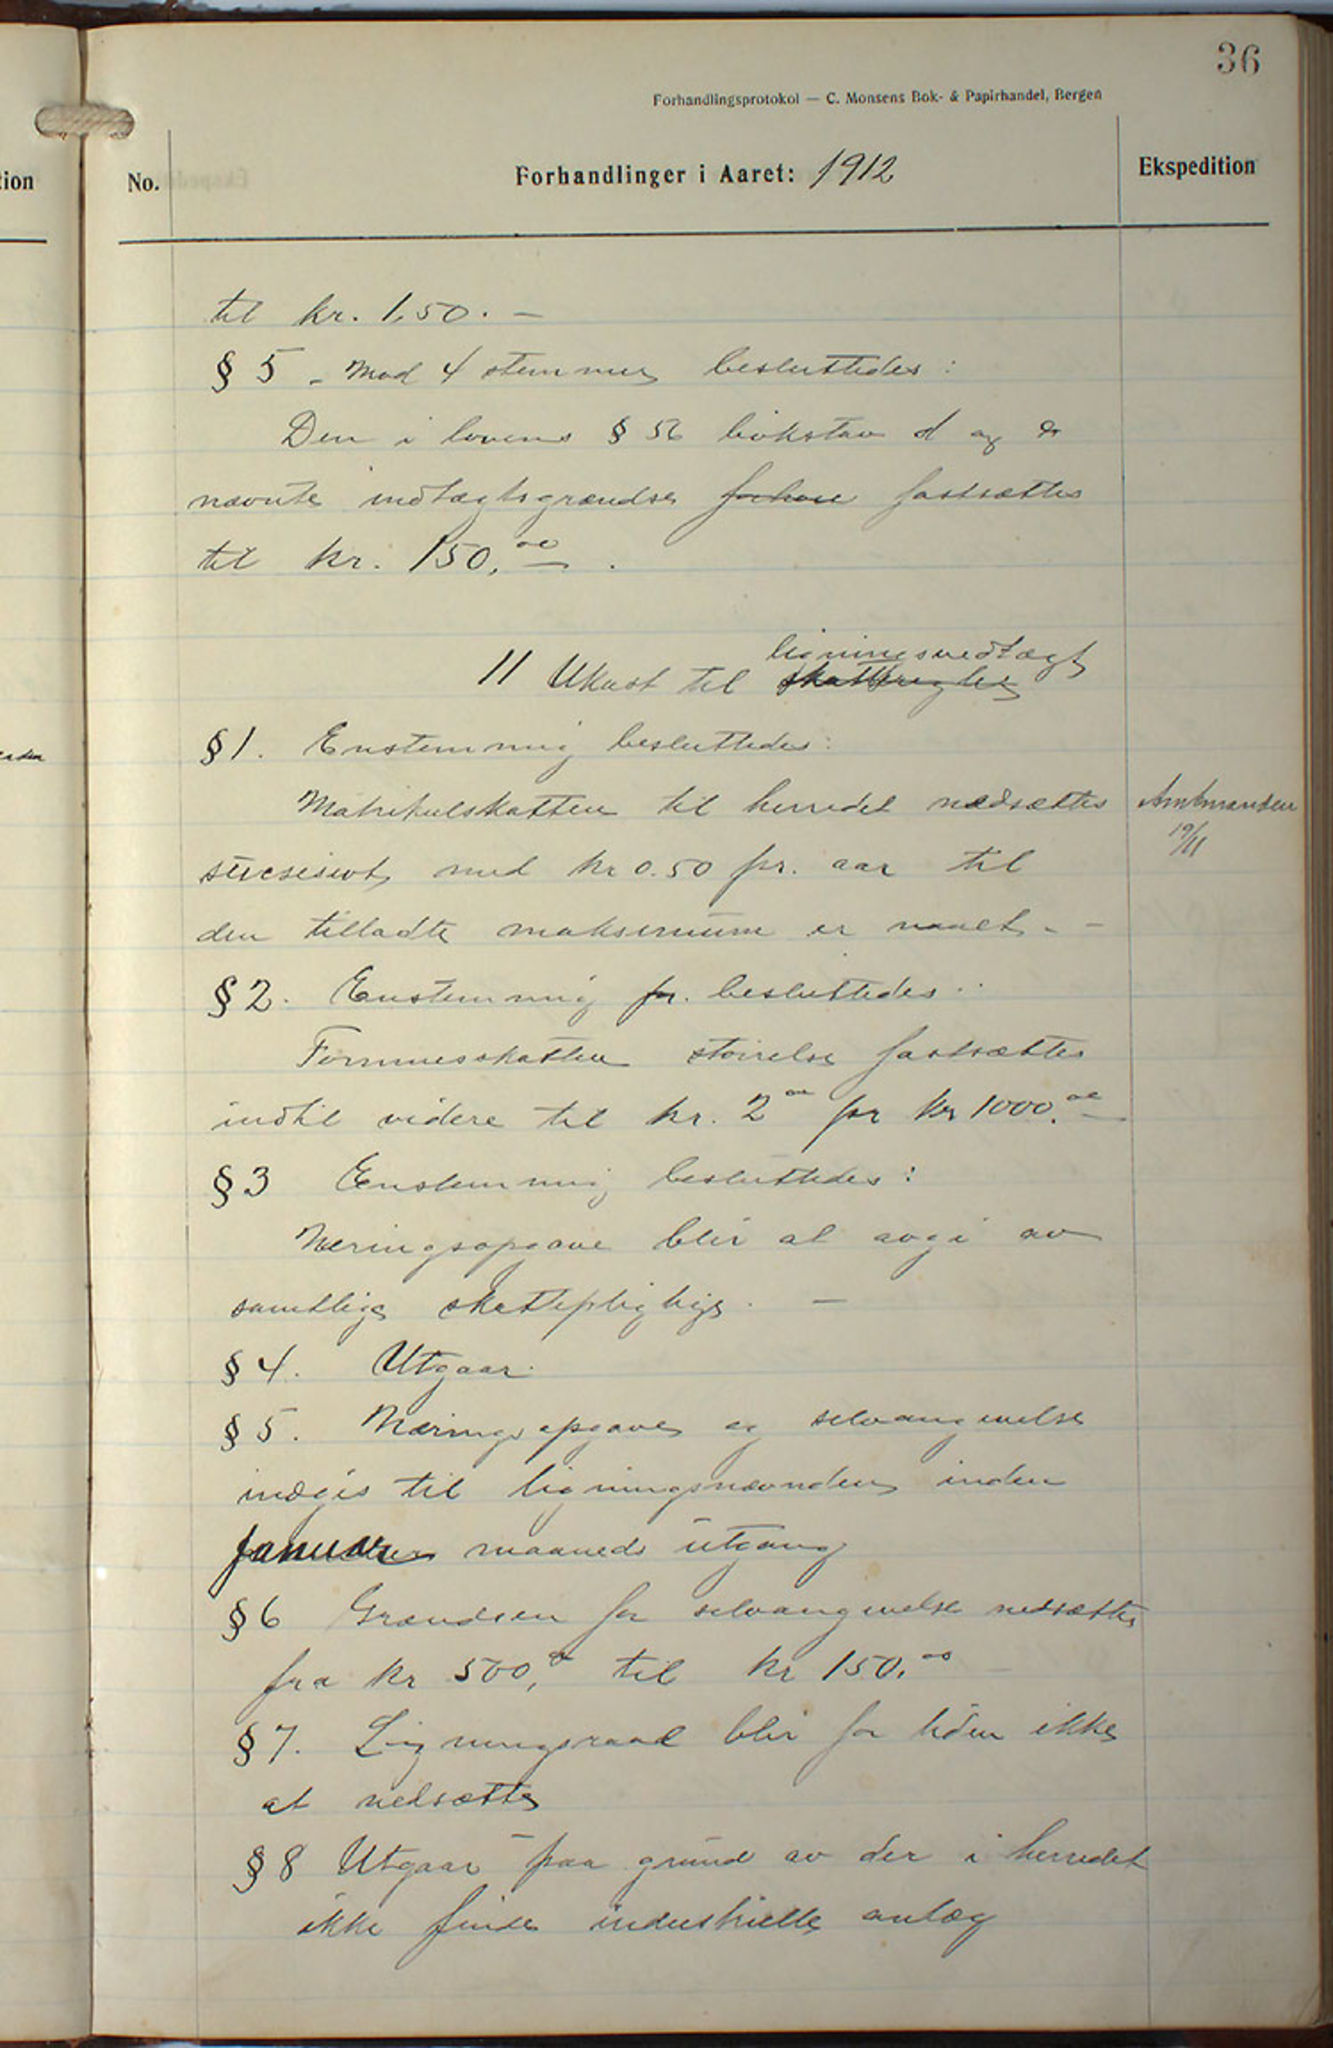 36
Forhandlingsprotokol — C. Monsens Bok- & Papirhandel, Bergen
tion
No.
Forhandlinger i Aaret: 1912
Ekspedition
til kr. 1,50. –
§ 5 - Mod 4 stemmer besluttedes:
Den i lovens § 56 bokstav d og e
nævnte indtægtsgrændse fastsættes
til kr. 150,00 .
ligningsvedtægt
11 Utkast til skatteregler
§ 1. Enstemmig besluttedes:
Matrikulskatten til herredet nedsættes
Amtmanden
19/11
sucsesivt med kr 0.50 pr. aar til
den tilladte maksimum er naaet. –
§ 2. Enstemmig for. besluttedes:
Formuesskatten størrelse fastsættes
indtil videre til kr. 2 00 pr kr 1000,00
§ 3 Enstemmig besluttedes:
Næringsopgave blir at avgi av
samtlige skattepligtige. –
§ 4. Utgaar.
§ 5. Næringsopgave og selvangivelse
indgis til ligningsnævnden inden
Januar maaneds utgang
§ 6 Grændsen for selvangivelse nedsættes
fra kr 500,00 til kr 150,00
§ 7. Ligningsraad blir for tiden ikke
at nedsætte
§ 8 Utgaar paa grund av der i herredet
ikke findes industrielle anlæg